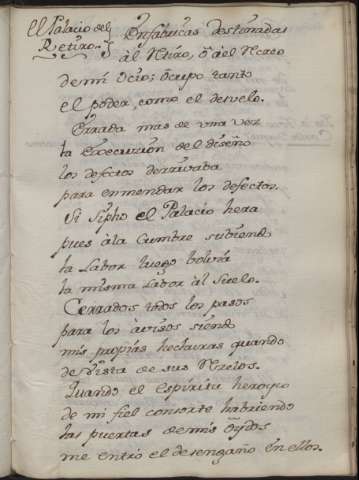 El Palacio del
Retiro.
En fabricas destinadas
àl Retiro, ò àel Recreo
de mi Ocio; òcupo tanto
el poder, como el desvelo.
Errada mas de una vez
la Execucion del diseño
los defectos derrivava
para enmendar los defectos.
Si Sipho el Palacio hera
pues àla Cumbre subiendo
la Labor luego bolvia
la misma Labor àl suelo.
Cerrados todos los pasos
para los àvisos siendo
mis propias hechuras quando
de Vista de sus
Quando el espiritu heroyco
de mi fiel consorte habriendo
las puertas de mis Oydos
me entrò el desengaño en ellos.